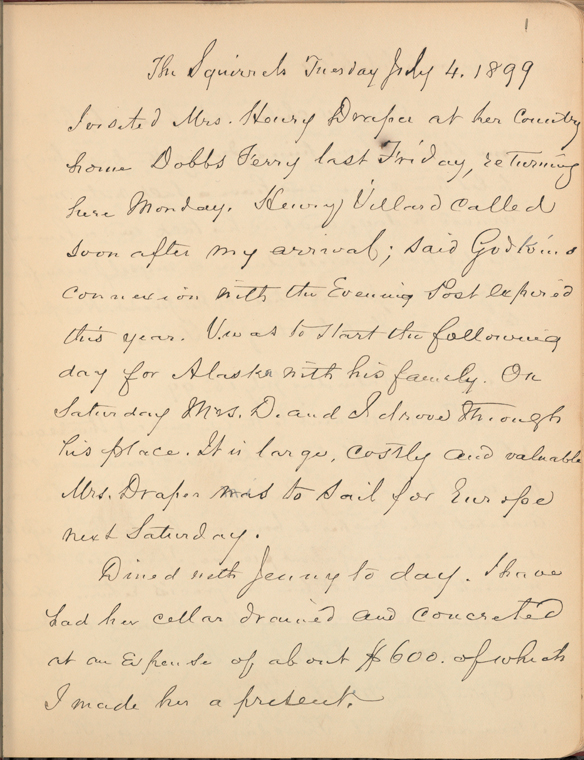 1
The Squirrels Tuesday July 4. 1899
I visited Mrs. Henry Draper at her Country
home Dobbs Ferry last Friday, returning
here Monday. Henry Villard called
soon after my arrival; said Godkins
connexion with the Evening Post expired
this year. V. was to start the following
day for Alaska with his family. On
Saturday Mrs. D. and I drove through
his place. It is large, costly and valuable
Mrs. Draper was to sail for Europe
next Saturday.
Dined with Jenny to day. I have
had her cellar drained and concreted
at an expense of about $600. of which
I made her a present.